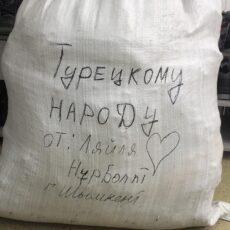 Турецкому
народу
от: Ляйля
Нурболат
г. Шымкент